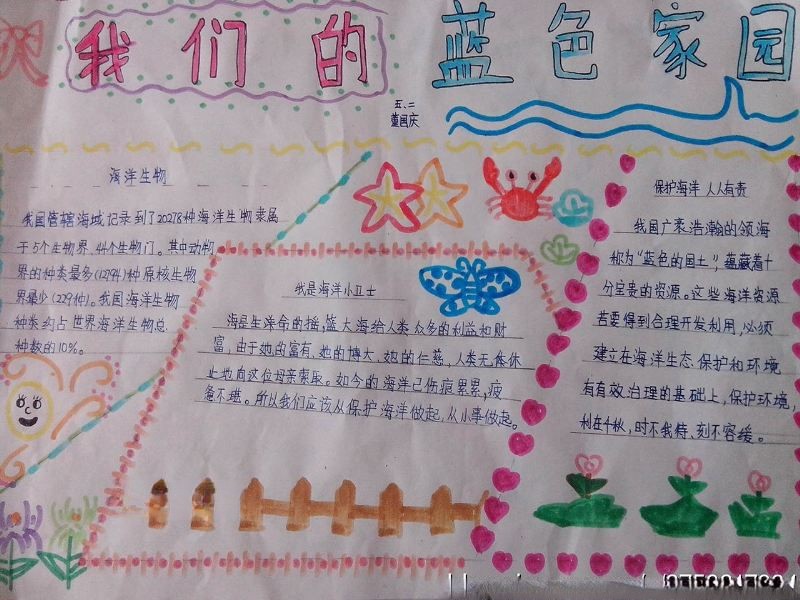 我们的蓝色家园
五、二
董国庆
海洋生物
我国管辖海域记录到了20278种海洋生物隶属
于5个生物界、44个生物门。其中动物
界的种类最多(12794)种原核生物
界最少(229种)。我国海洋生物
种类约占世界海洋生物总
种数的10%。
我是海洋小卫士
海是生命的摇篮大海给人类众多的利益和财
富,由于她的富有、她的博大、她的仁慈,人类无休休
止地向这位母亲索取。如今的海洋已伤痕累累,疲
惫不堪。所以我们应该从保护海洋做起,从小事做起。
保护海洋 人人有责
我国广袤浩瀚的领海
称为“蓝色的国土”,蕴藏着十
分宝贵的资源。这些海洋资源
若要得到合理开发利用,必须
建立在海洋生态保护和环境
有有效治理的基础上,保护环境,
利在千秋,时不我待、刻不容缓。